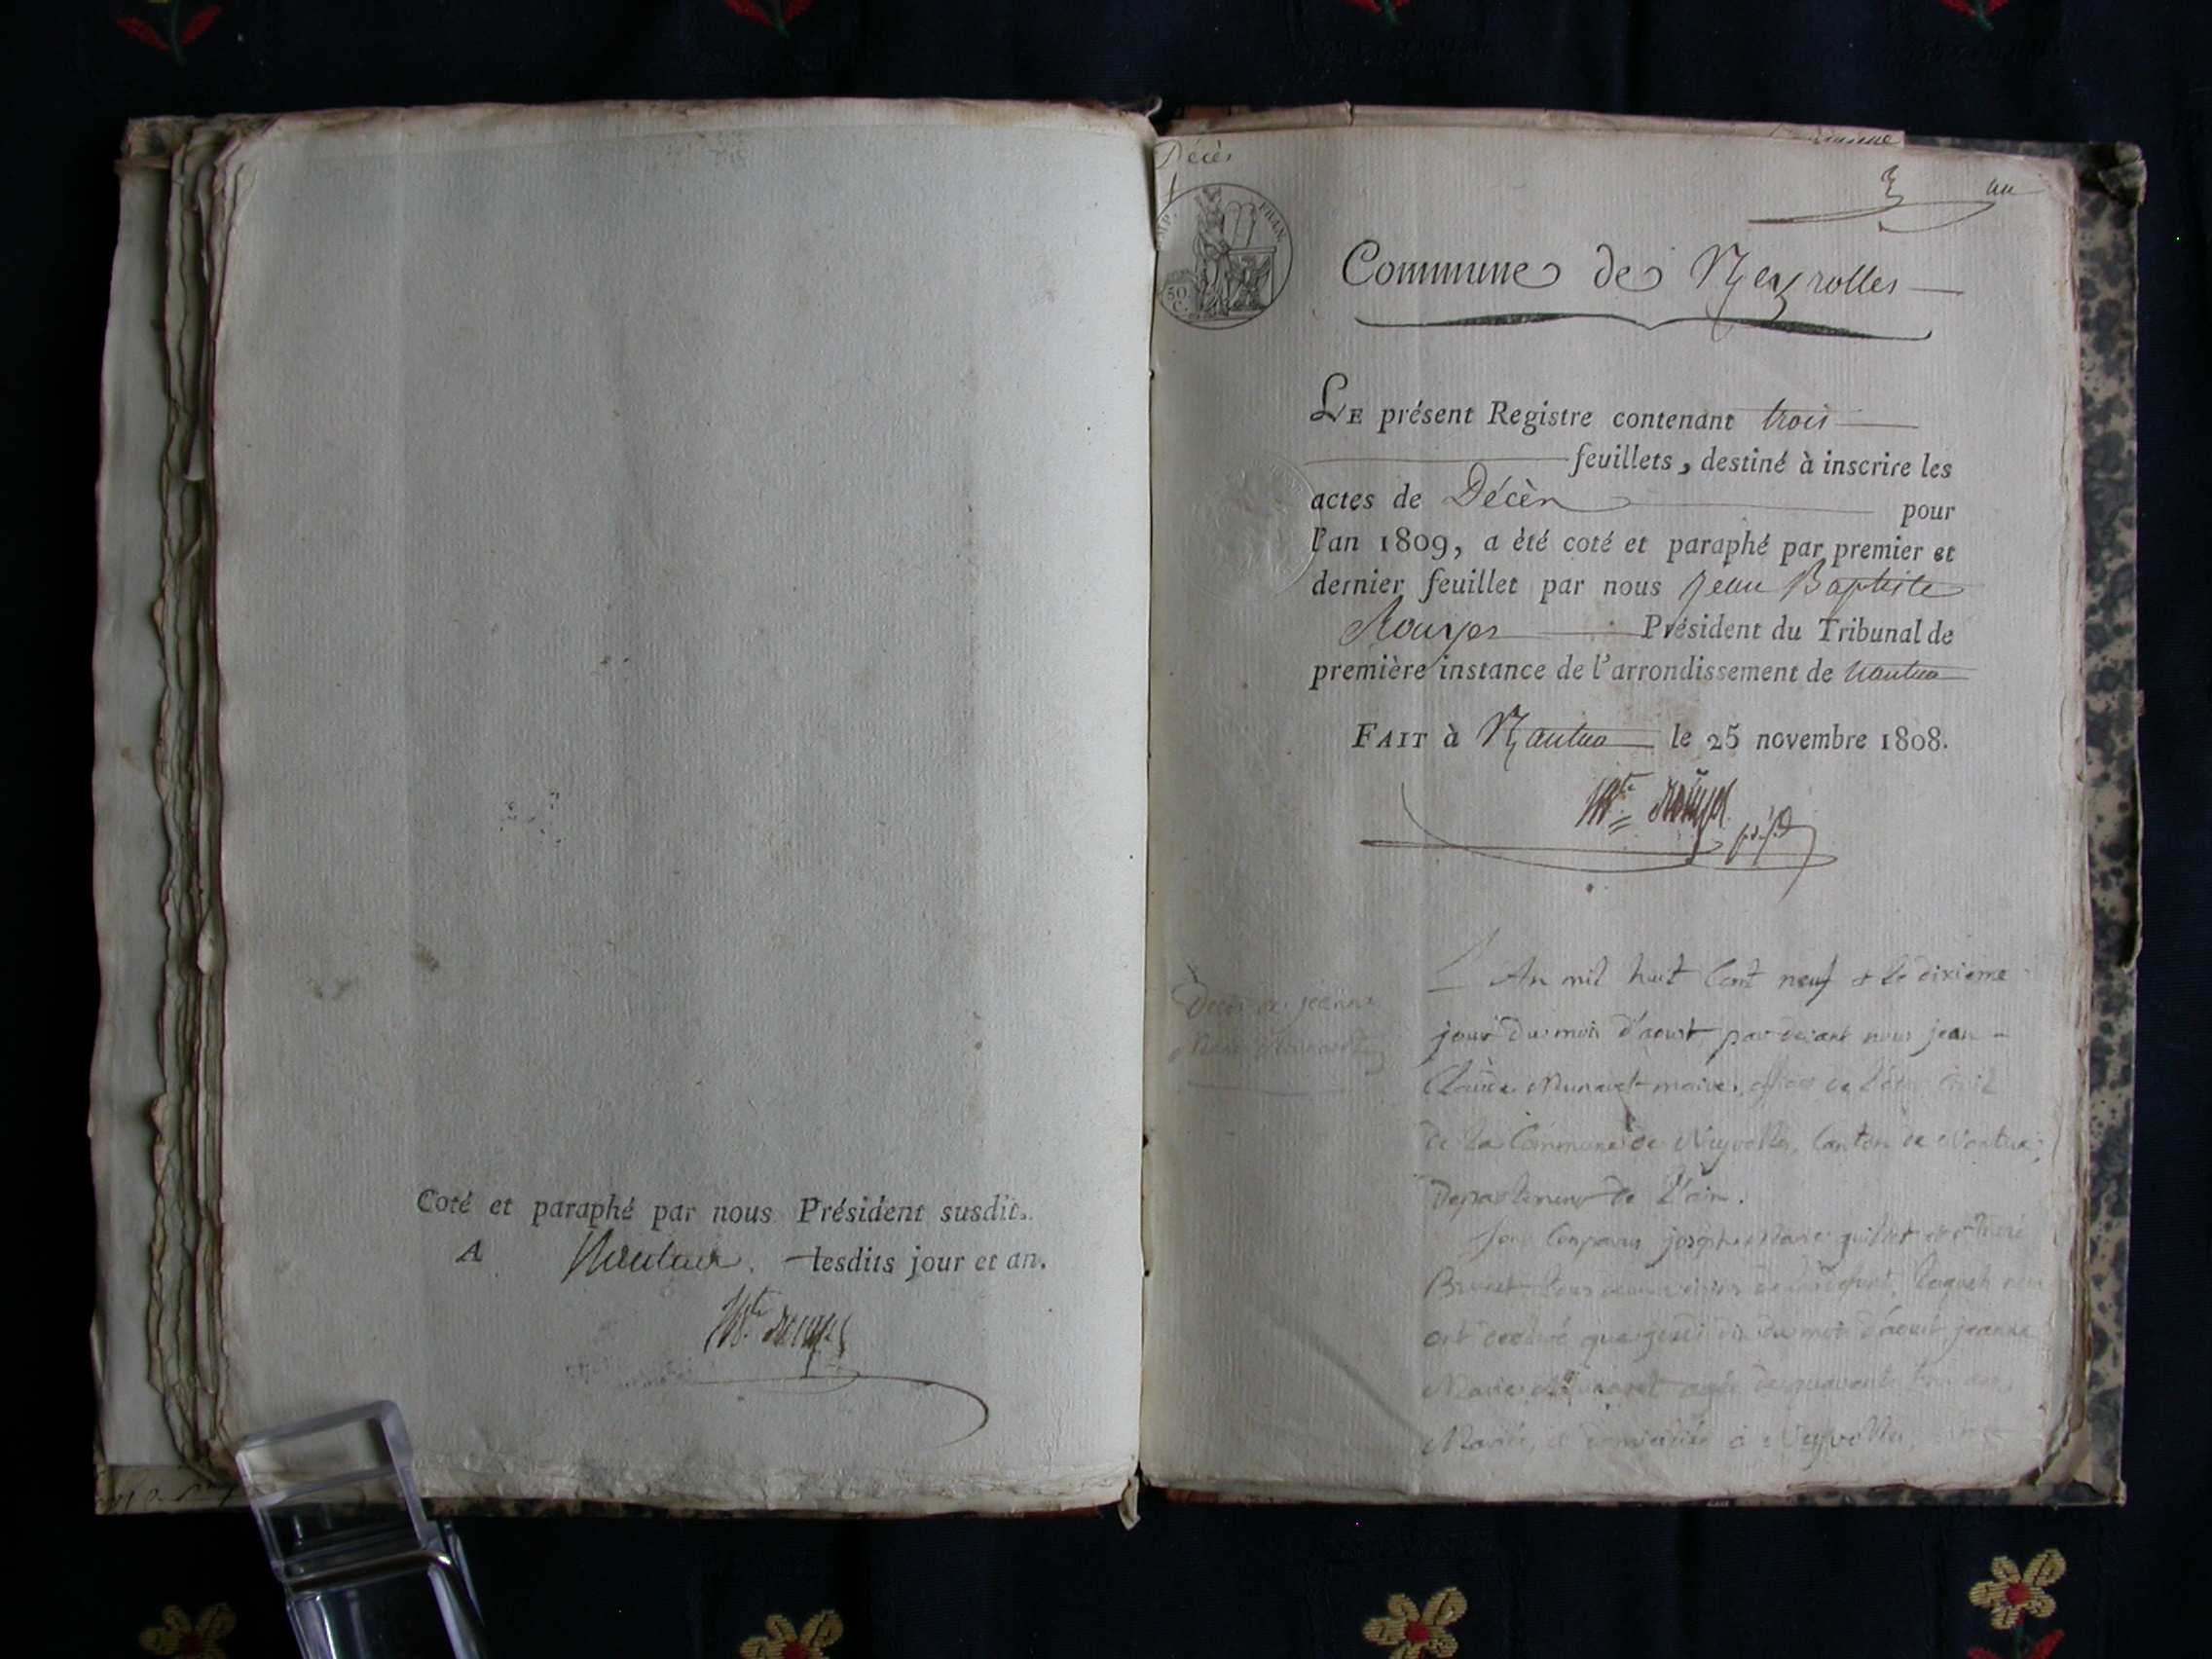 Coté et paraphé par nous Président susdit.
A Nantua, lesdits jour et an.
Bte Rouyer
Décès
1
FRAN.
50
C.
un
Commune de Neyrolles
LE présent Registre contenant trois
feuillets, destiné à inscrire les
actes de Décès pour
l'an 1809, a été coté et paraphé par premier et
dernier feuillet par nous Jean Baptiste
Rouyer Président du Tribunal de
première instance de l'arrondissement de Nantua
FAIT à Nantua le 25 novembre 1808.
Bte Rouyer
Deces de jeanne
Marie
L'An mil huit Cent neuf & le dixieme
jour du mois d'aoust par devant nous jean
Claude Munaret maire, officier de l'état Civil
de la Commune de Neyrolles, Canton de Nantua,
Departement de l'ain.
Sont Comparus joseph Marie guillet et
Brunet tous deux voisins lesquels
ont declaré que jeudi dix du mois d'aoust jeanne
Marie Munaret agée de quarante ans
Mariée, & domiciliée à Neyrolles